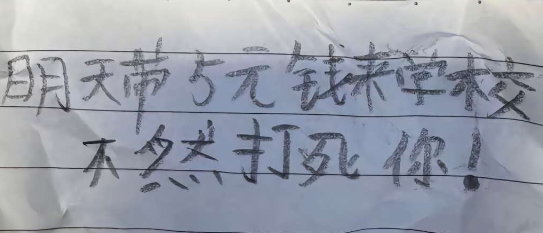 明天带5元钱来学校
不然打死你!